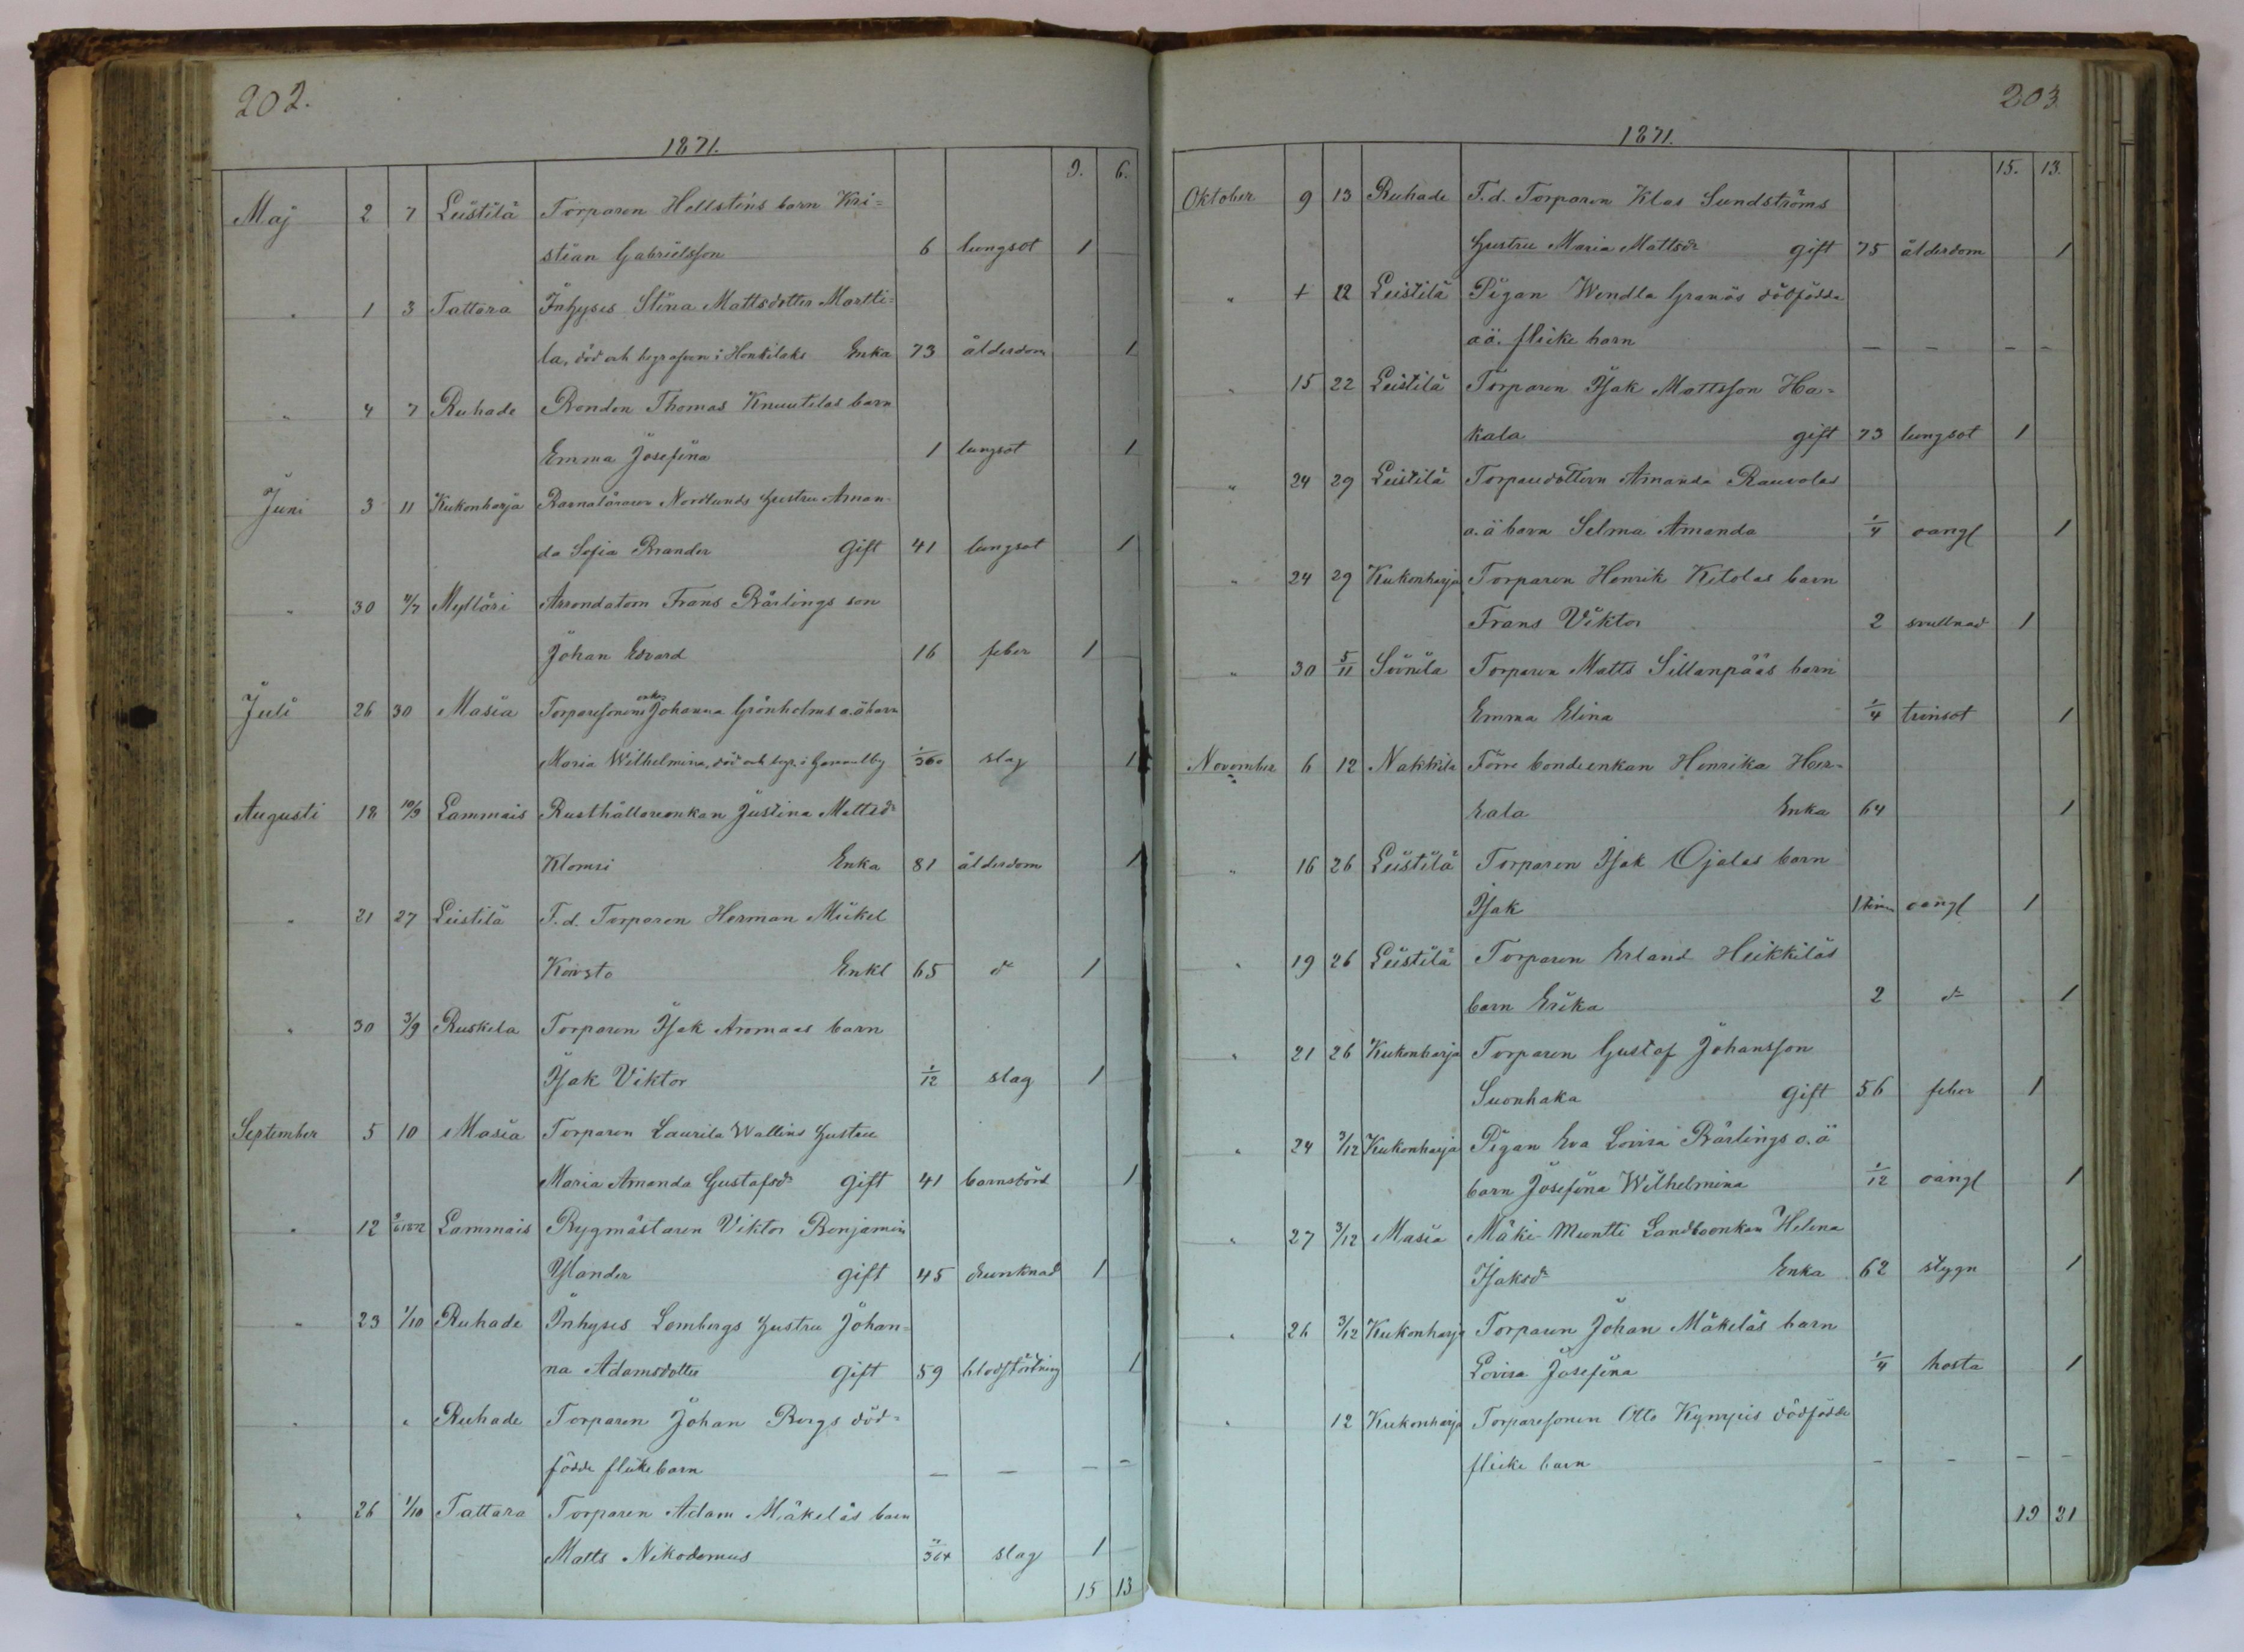 202.
1871.
9. 6.
Maj 2 7 Leistilä Torparen Hellsténs barn Kri=
stian Gabrielsson 6 lungsot 1
" 1 3 Tattara Inhyses Stina Mattsdotter Martti=
la, död och begrafven i Honkilaks Enka 73 ålderdom 1
" 4 7 Ruhade Bonden Thomas Knuutilas barn
Emma Josefina 1 lungsot 1
Juni 3 11 Kukonharja Barnaläraren Nordlunds hustru Aman-
da Sofia Brander Gift 41 lungsot 1
" 30 4/7 Mylläri Arrendatorn Frans Bärlings son
Johan Edvard 16 feber 1
Juli 26 30 Masia Torparesonens enka Johanna Grönholms o.ä barn
Maria Wilhelmina, död och begr. i Gammelby 1/360 slag 1
Augusti 18 10/9 Lammais Rusthållareenkan Justina Mattsdr
Klomsi Enka 81 ålderdom 1
" 21 27 Leistilä F.d. Torparen Herman Mickel
Koivsto Enkl 65 do 1
" 30 3/9 Ruskila Torparen Isak Aromaas barn
Isak Viktor 1/12 slag 1
September 5 10 Masia Torparen Laurila Wallins hustru
Maria Amanda Gustafsdr gift 41 barnsbörd 1
" 12 1872 Lammais Bygmästaren Viktor Benjamin
Ylander gift 45 drunknad 1
" 23 1/10 Ruhade Inhyses Lembergs hustru Johan=
na Adamsdotter Gift 59 blodstörtning 1
" " Ruhade Torparen Johan Bergs död=
födde flickebarn — — — —
" 26 1/10 Tattara Torparen Adam Mäkeläs barn
Matts Nikodemus /364 slag 1
15 13
203.
1871.
15. 13.
Oktober 9 13 Ruhade F.d. Torparen Klas Sundströms
hustru Maria Mattsdr gift 75 ålderdom 1
" + 22 Leistilä Pigan Wendla Granös dödfödda
oä. flicke barn — — — —
" 15 22 Leistilä Torparen Isak Mattsson Ha=
kala gift 73 lungsot 1
" 24 29 Leistilä Torparedottern Amanda Rauvolas
o.ä barn Selma Amanda 1/4 oangf 1
" 24 29 Kukonharja Torparen Henrik Ketolas barn
Frans Viktor 2 svullnad 1
" 30 5/11 Soinila Torparen Matts Sillanpääs barn
Emma Elina 1/4 trinsot 1
November 6 12 Nakkila Förre bondeenkan Henrika Har-
hala Enka 64 1
" 16 26 Leistilä Torparen Isak Ojalas barn
Isak 1 tim oangf 1
" 19 26 Leistilä Torparen Erland Heikkiläs
barn Erika 2 do 1
" 21 26 Kukonharja Torparen Gustaf Johansson
Suonhaka Gift 56 feber 1
" 24 3/12 Kukonharja Pigan Eva Lovisa Bärlings o.ä
barn Josefina Wilhelmina 1/12 oangf 1
" 27 3/12 Masia Mäki-Muntti Landboenkan Helena
Isaksdr Enka 62 stygn 1
" 26 3/12 Kukonharja Torparen Johan Mäkeläs barn
Lovisa Josefina 1/4 hosta 1
" 12 Kukonharja Torparesonen Otto Kynpis dödfödde
flicke barn — — — —
19 21